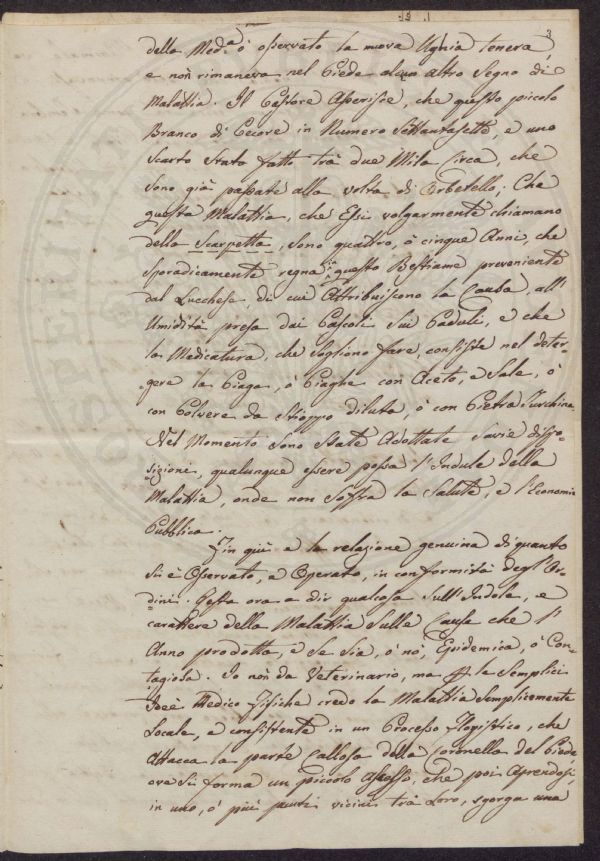 3
della Med.ª ò osservato la nuova Ugnia tenera,
e non rimaneva nel Piede alcun altro Segno di
Malattia. Il Pastore Asserisce, che questo piccolo
Branco di Pecore in Numero Settantasette, e uno
Scarto Stato fatto trà due Mila Circa, che
sono già passate alla volta di Orbetello; Che
questa Malattia, che Essi volgarmente chiamano
della Scarpetta, sono quattro, ò cinque Anni, che
Sporadicamente regna in questo Bestiame proveniente
dal Lucchese, di cui Attribuiscono la Causa, all'
Umidità presa dai Pascoli Sui Paduli, e che
la Medicatura, che sogliono fare, consiste nel deter-
gere la Piaga, ò Piaghe con Aceto, e Sale, ò
con Polvere da Stioppo diluta, ò con Pietra Turchina
Nel Momento sono state Adottate Savie dispo-
sizioni, qualunque essere possa l'Indule della
Malattia, onde non Soffra la Salute, e l'Economia
Pubblica.
Fin quì e la relazione genuina di quanto
si è Osservato, e Operato, in conformità degl'Or-
dini. Resta ora a dir qualcosa sull'Indole, e
carattere della Malattia sulle Cause che l'
Anno prodotta, e se sia, ò nò, Epidemica, ò Con-
tagiosa. Io non da Veterinario, ma p. le Semplici
Idee Medico fisiche credo la Malattia Semplicemente
Locale, e consistente in un Processo Flogistico, che
Attacca la parte Callosa della Coronella del Piede
ove si forma un piccolo Ascesso, che poi Aprendosi
in uno, ò più punti vicini trà Loro, sgorga una